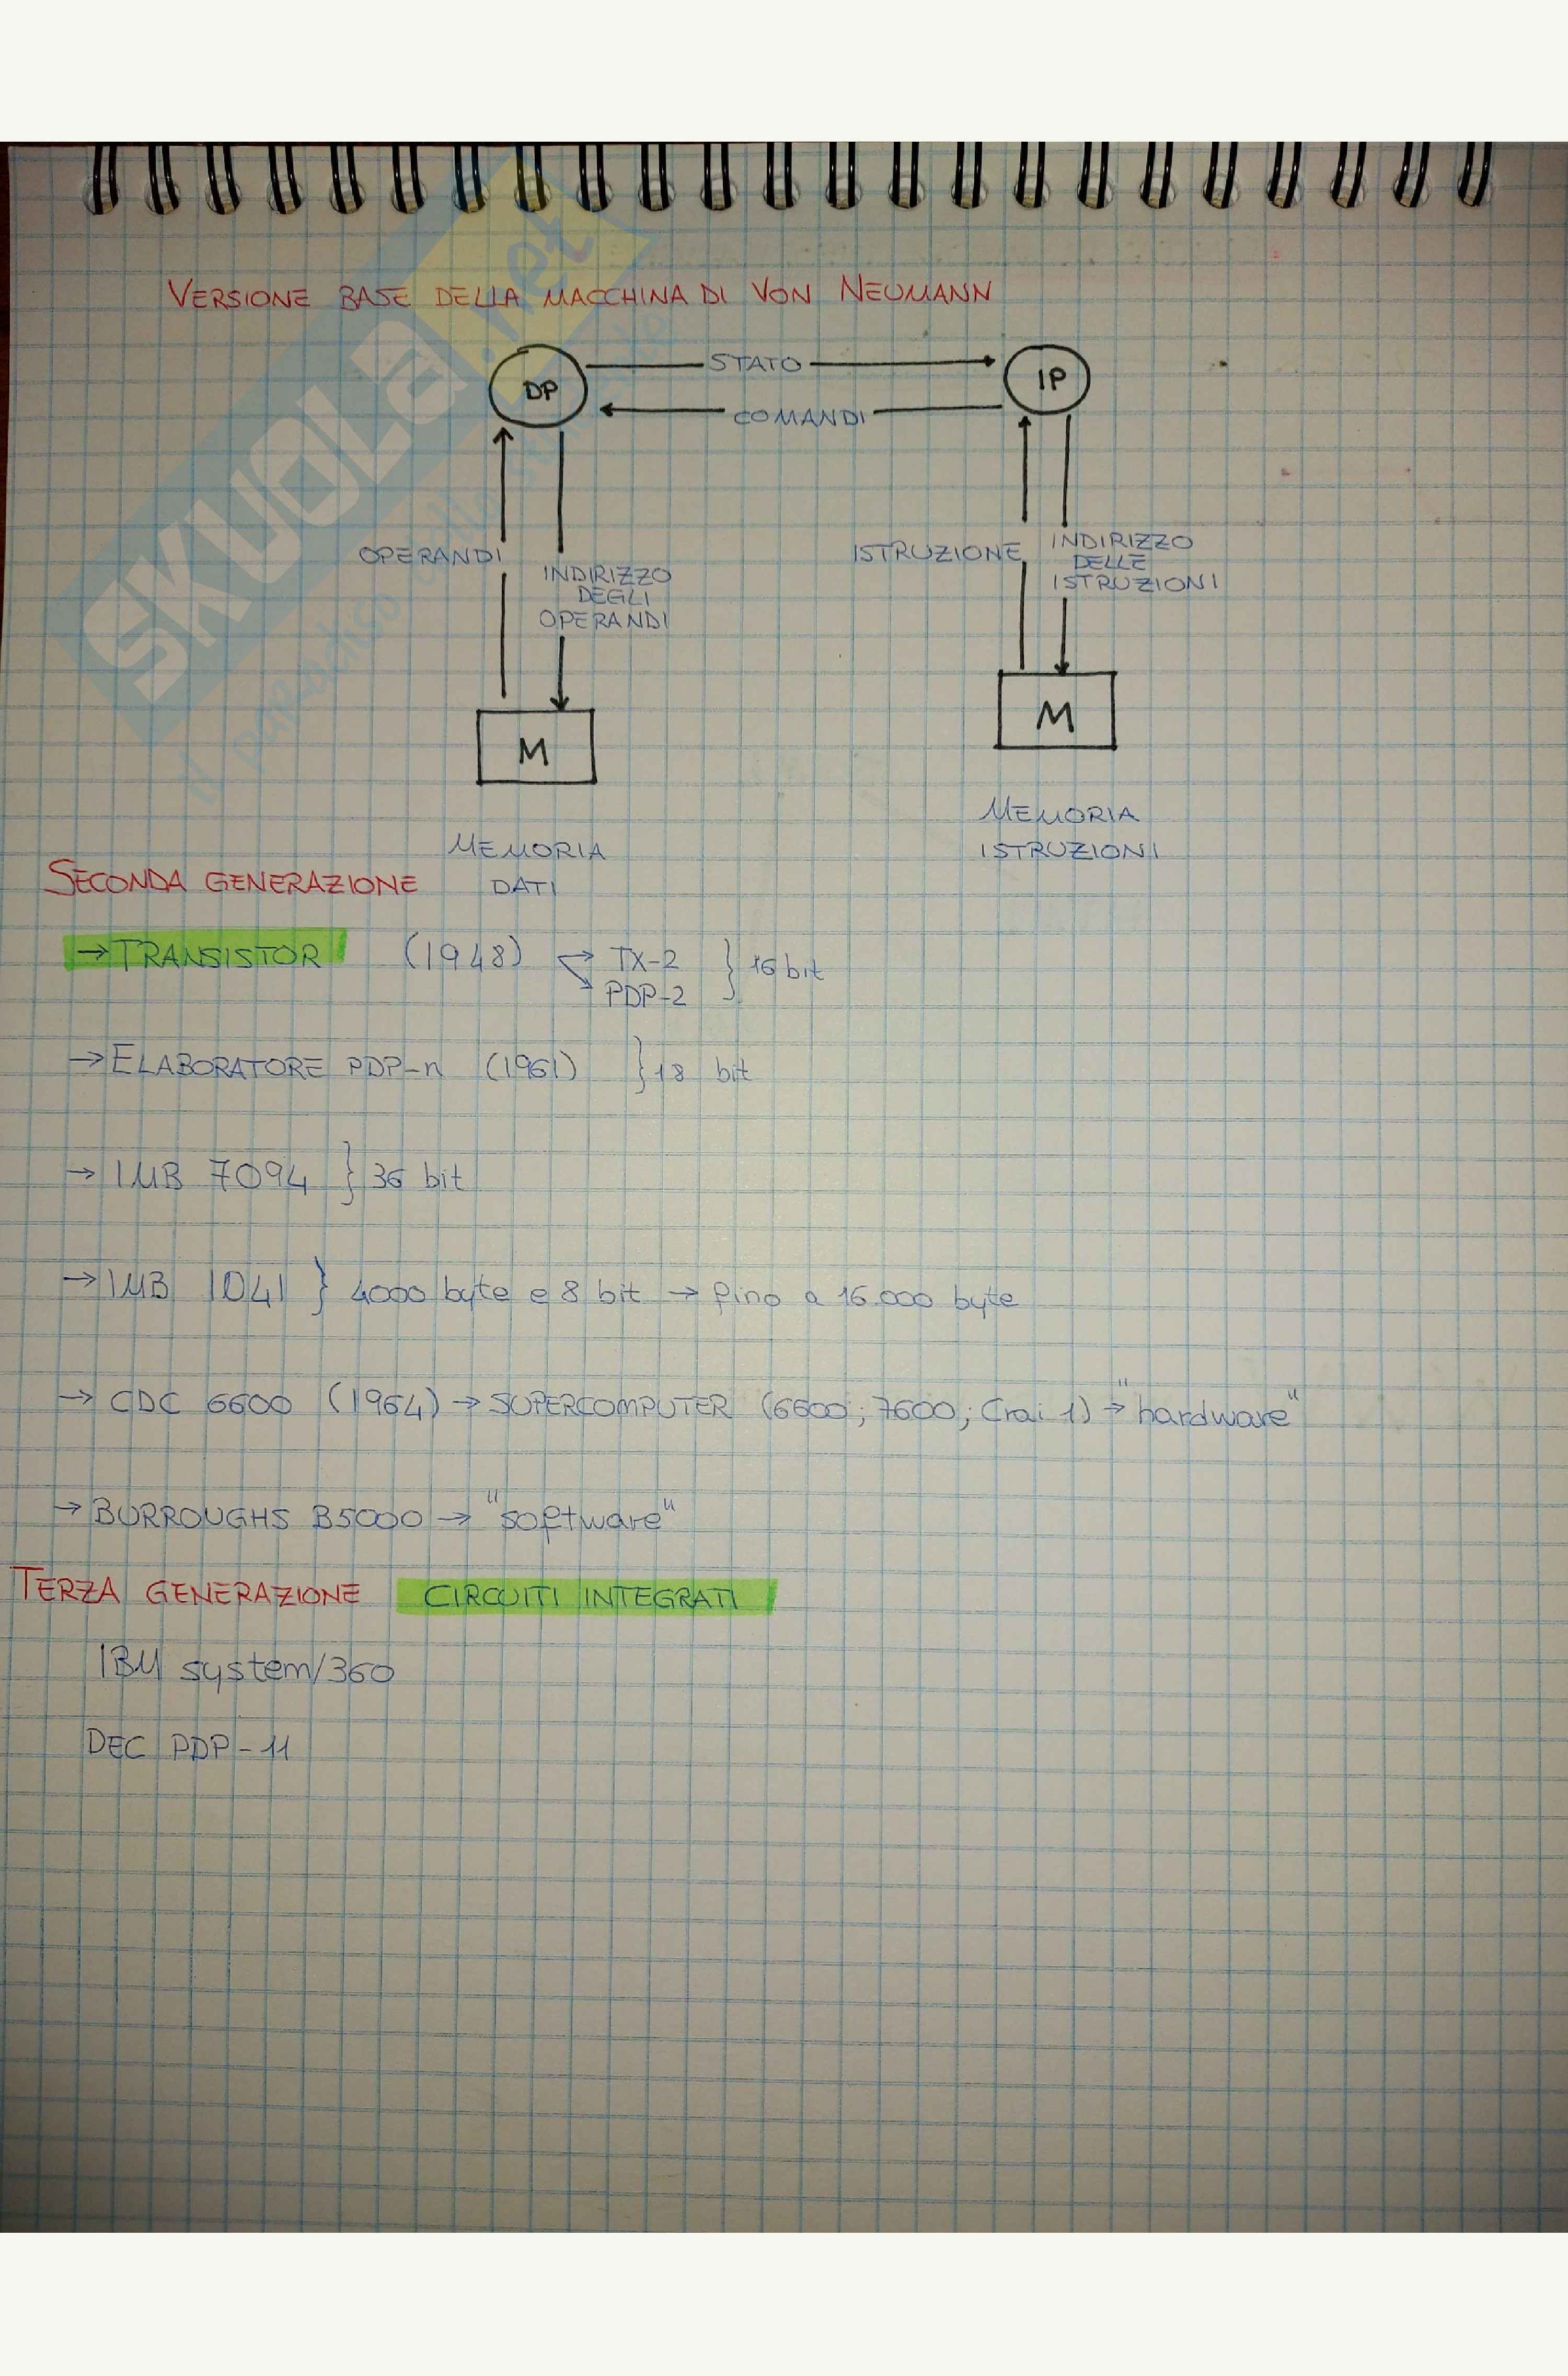 SKUOLA.net
il paradiso dello studente
VERSIONE BASE DELLA MACCHINA DI VON NEUMANN
DP
STATO
IP
COMANDI
OPERANDI
INDIRIZZO
DEGLI
OPERANDI
ISTRUZIONE
INDIRIZZO
DELLE
ISTRUZIONI
M
M
MEMORIA
DATI
MEMORIA
ISTRUZIONI
SECONDA GENERAZIONE
→ TRANSISTOR (1948) → TX-2 } 16 bit
→ PDP-2
→ ELABORATORE PDP-n (1961) } 18 bit
→ IMB 7094 } 36 bit
→ IMB 1041 } 4000 byte e 8 bit → fino a 16.000 byte
→ CDC 6600 (1964) → SUPERCOMPUTER (6600; 7600; Crai 1) → "hardware"
→ BURROUGHS B5000 → "software"
TERZA GENERAZIONE CIRCUITI INTEGRATI
IBM system/360
DEC PDP-11